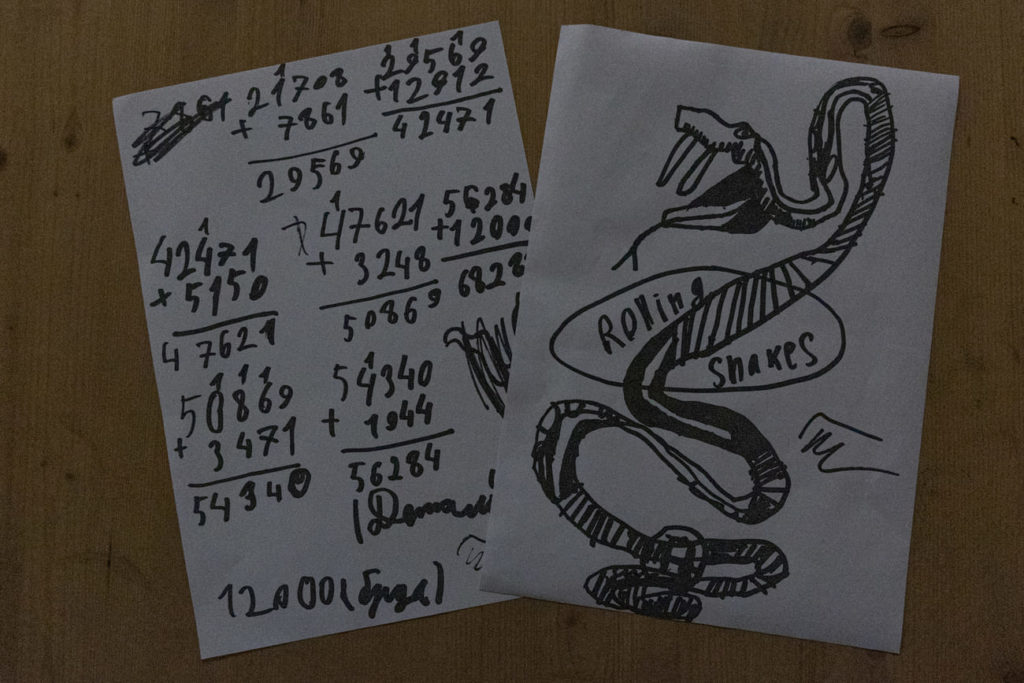 21708
+ 7861
29569
29569
+12912
42471
42471
+ 5150
47621
47621
+ 3248
50869
56284
50869
+ 3471
54340
54340
+ 1944
56284
12000
ROlling
snakes